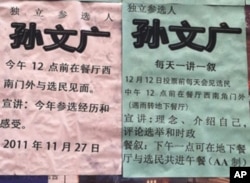 独立参选人
孙文广
今午 12 点前在餐厅西
南门外与选民见面。
宣讲：今年参选经历和
感受。
2011 年 11 月 27 日
独立参选人
孙文广
每天一讲一叙
12 月 12 日投票前每天会见选民
中午 12 点前在餐厅西南角门外
（遇雨转地下餐厅）
宣讲：理念、介绍自己，
评论选举和时政
餐叙：下午一点可在地下餐
厅与选民共进午餐（AA 制）
AP